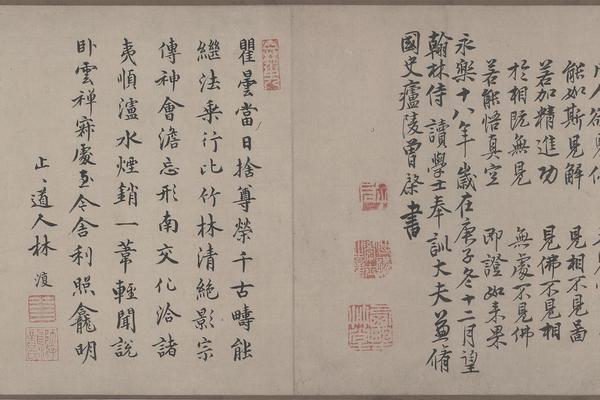 能如斯見解 見相不見
若加精進功 見佛不見相
於相既無見 無處不見佛
若能悟真空 即證如來果
永樂十八年歲在庚子冬十二月望
翰林侍讀學士奉訓大夫兼脩
國史廬陵曾棨書
瞿曇當日捨尊榮千古疇能
繼法乘行比竹林清絕影宗
傳神會澹忘形南交化洽諸
夷順瀘水煙銷一葦輕聞說
卧雲禪寂處至今舍利照龕明
止〻道人林